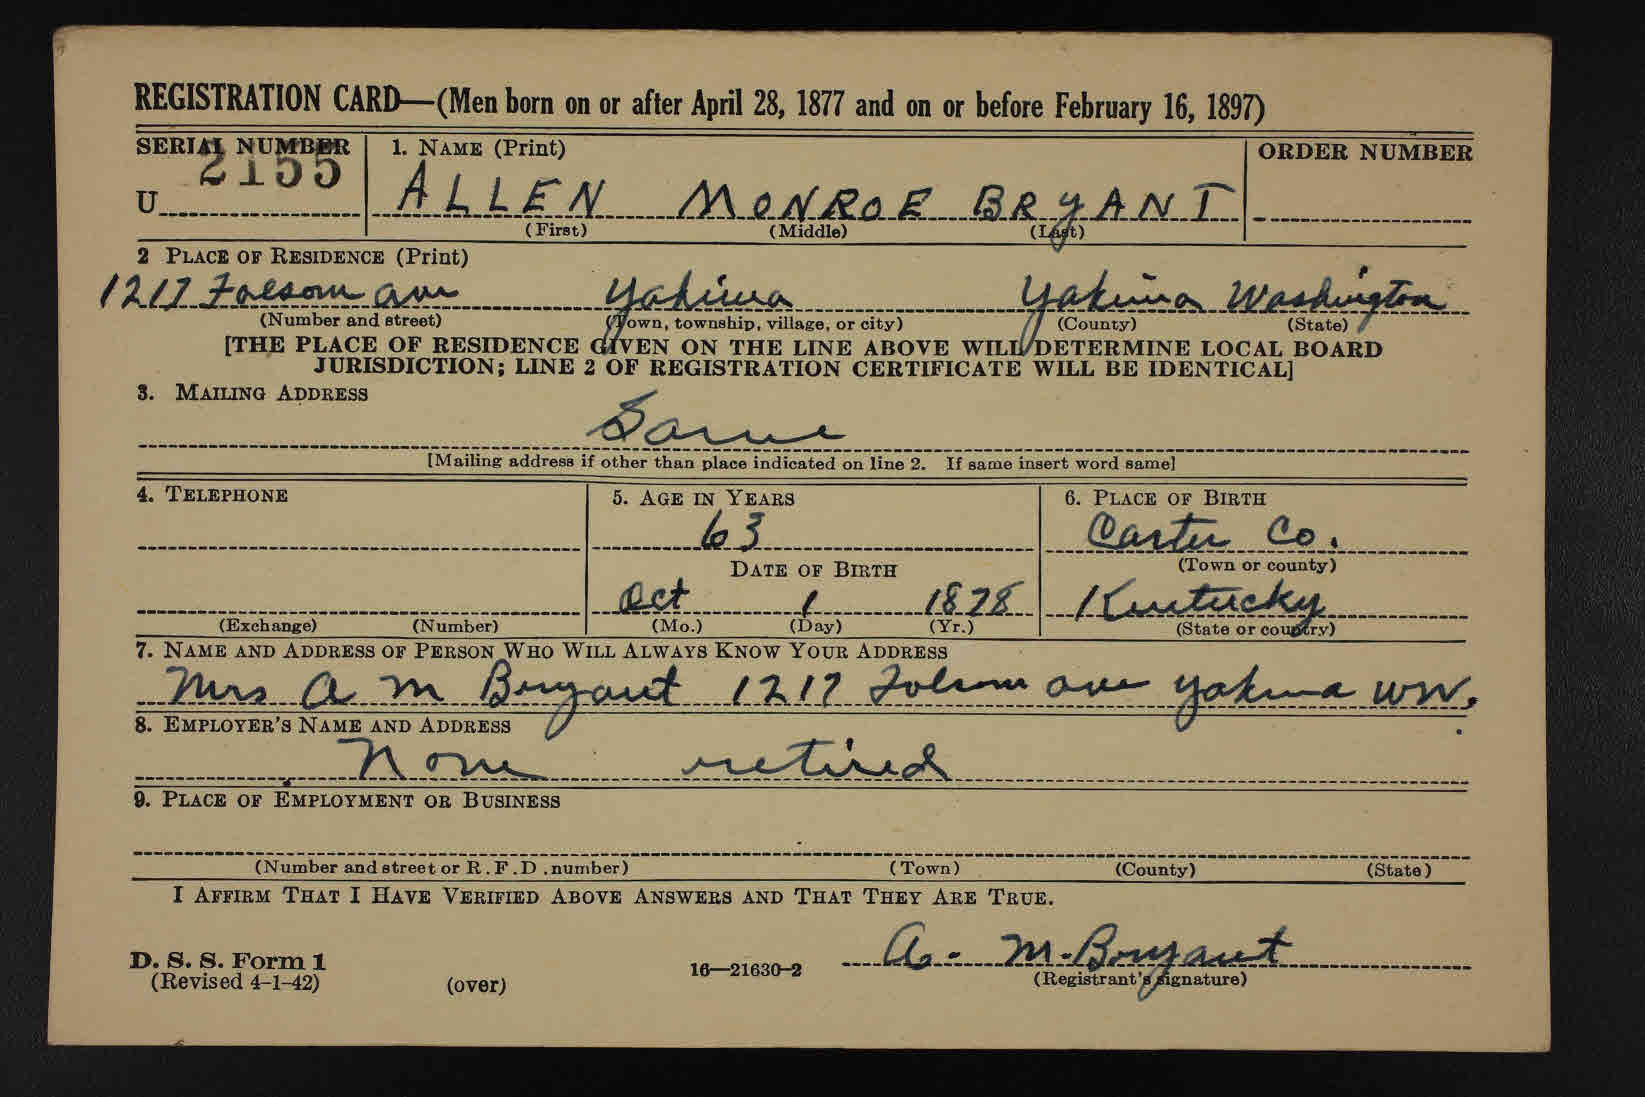 REGISTRATION CARD—(Men born on or after April 28, 1877 and on or before February 16, 1897)
SERIAL NUMBER 1. NAME (Print) ORDER NUMBER
U 2155 ALLEN MONROE BRYANT
(First) (Middle) (Last)
2 PLACE OF RESIDENCE (Print)
1217 Folsom ave Yakima Yakima Washington
(Number and street) (Town, township, village, or city) (County) (State)
[THE PLACE OF RESIDENCE GIVEN ON THE LINE ABOVE WILL DETERMINE LOCAL BOARD
JURISDICTION; LINE 2 OF REGISTRATION CERTIFICATE WILL BE IDENTICAL]
3. MAILING ADDRESS
Same
[Mailing address if other than place indicated on line 2. If same insert word same]
4. TELEPHONE 5. AGE IN YEARS 6. PLACE OF BIRTH
63 Carter Co.
DATE OF BIRTH (Town or county)
Oct 1 1878 Kentucky
(Exchange) (Number) (Mo.) (Day) (Yr.) (State or country)
7. NAME AND ADDRESS OF PERSON WHO WILL ALWAYS KNOW YOUR ADDRESS
Mrs A M Bryant 1217 Folsom ave Yakima WN.
8. EMPLOYER'S NAME AND ADDRESS
None retired
9. PLACE OF EMPLOYMENT OR BUSINESS
(Number and street or R.F.D. number) (Town) (County) (State)
I AFFIRM THAT I HAVE VERIFIED ABOVE ANSWERS AND THAT THEY ARE TRUE.
A. M. Bryant
D. S. S. Form 1
(Revised 4-1-42) (over) 16—21630-2 (Registrant's signature)